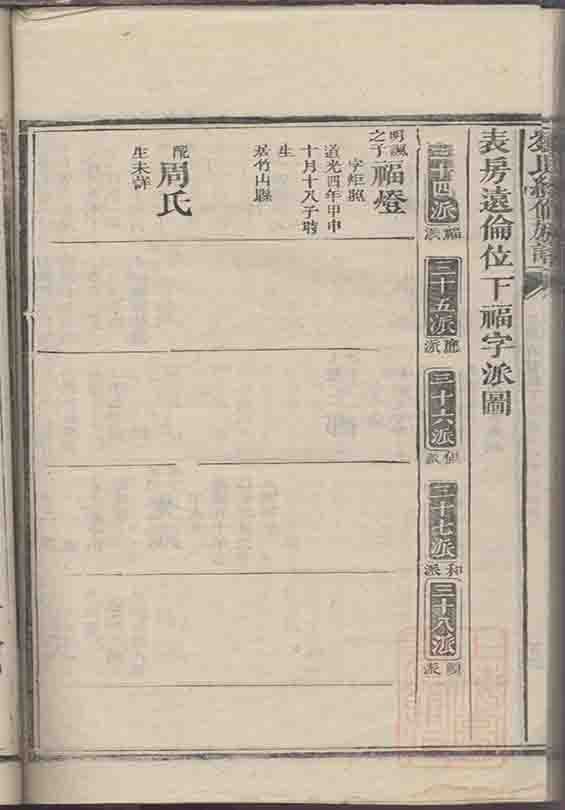 氏續修族譜
表房遠倫位下福字派圖
三十四派
福派
三十五派
應派
三十六派
三十七派
和派
三十八派
明諷之子
福燈
字炬照
道光四年甲申
十月十八子時
生
居竹山縣
配
周氏
生未詳